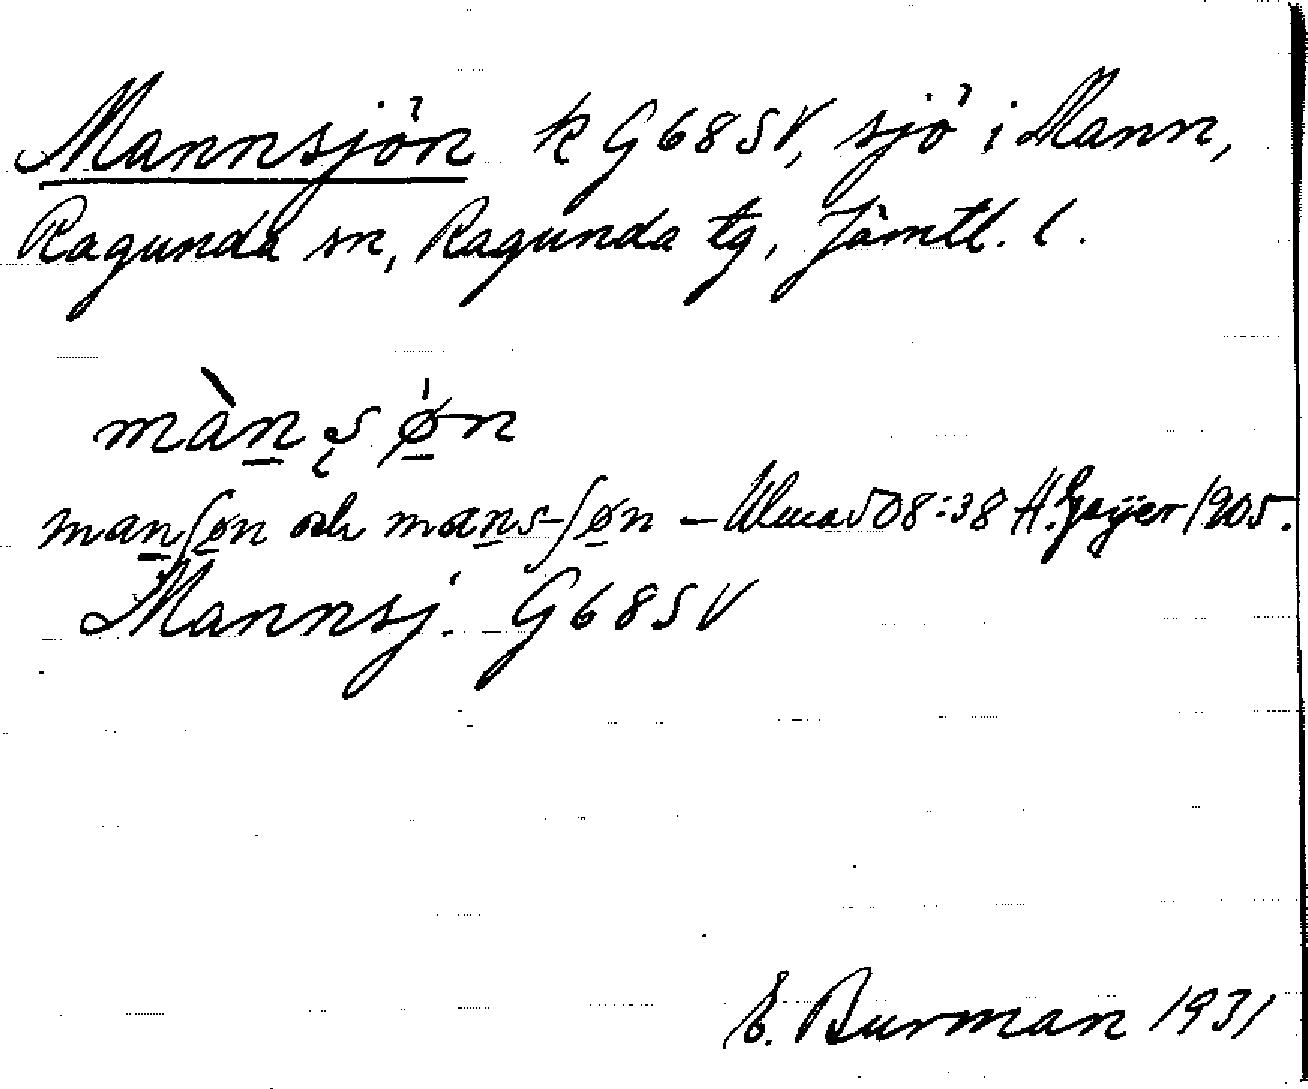 Mannsjön k G68SV, sjö i Mann,
Ragunda sn, Ragunda tg, Jämtl. l.
màn̲ʂø̲n
man̲ʃø̲n och man̲s-ʃø̲n – Ulma 508:38 H. Geijer 1905.
Mannsj. G68SV
E. Burman 1931